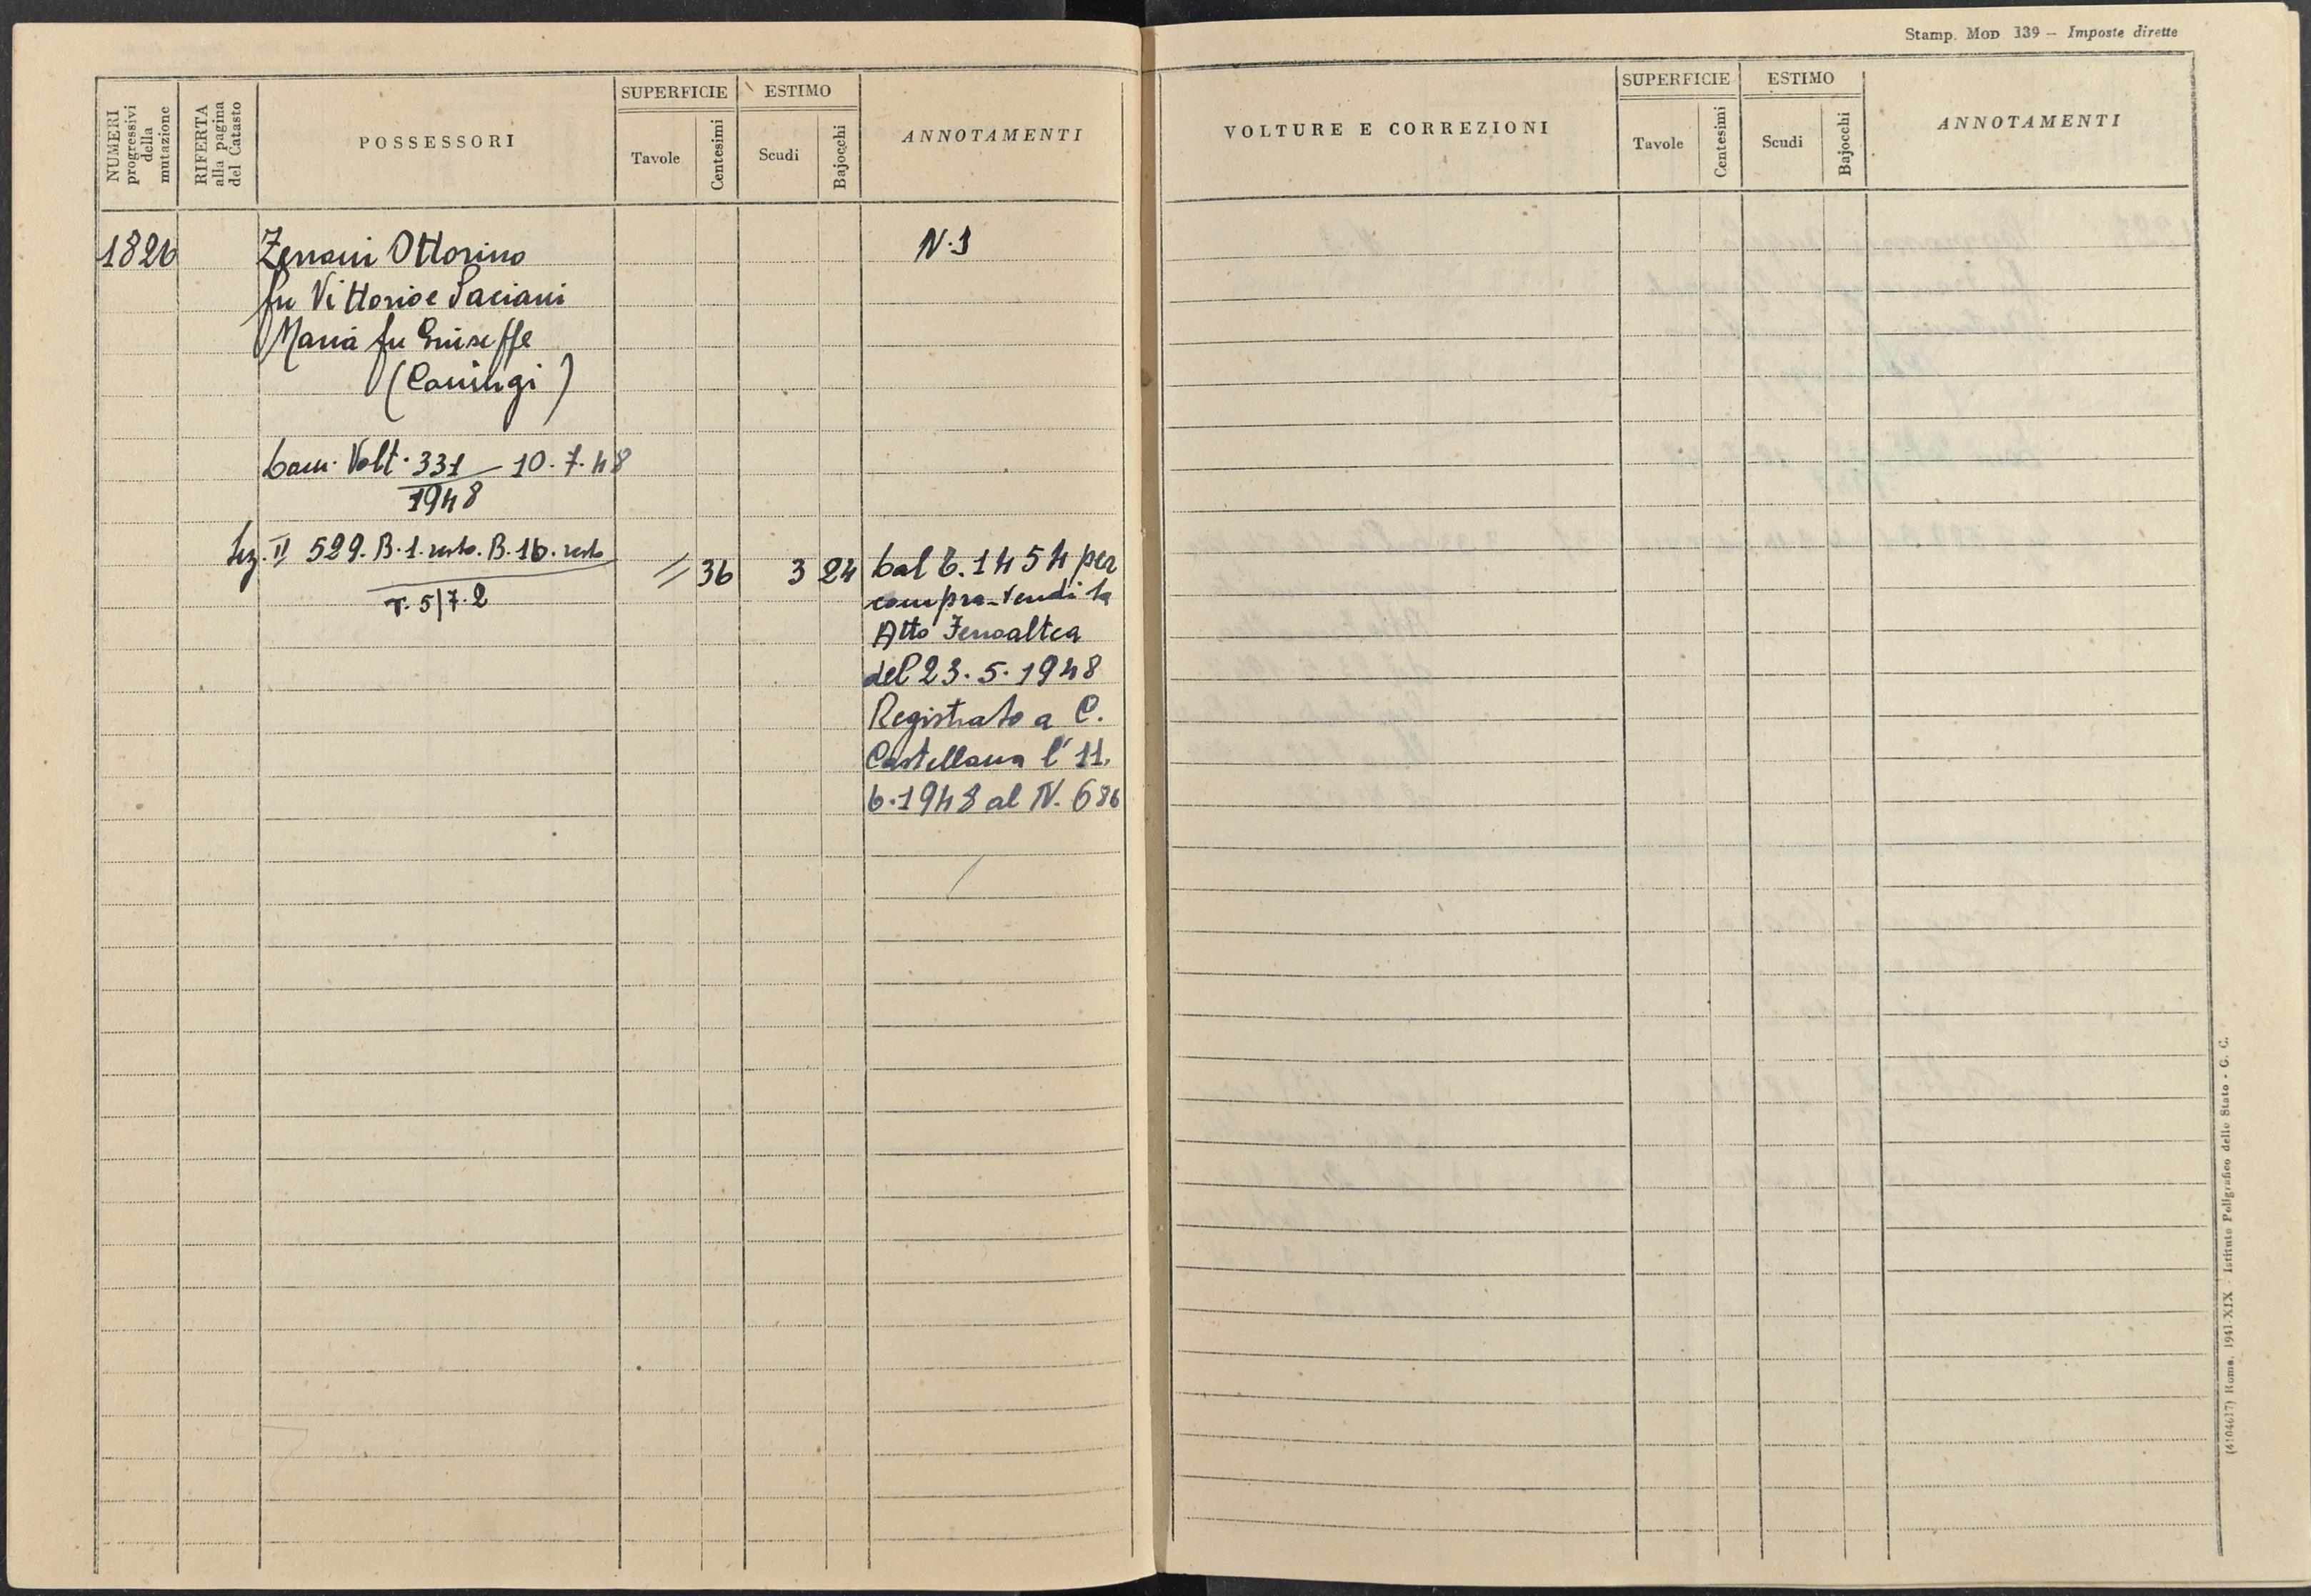 Stamp. Mod 139 — Imposte dirette
NUMERI progressivi della mutazione
RIFERTA alla pagina del Catasto
POSSESSORI
SUPERFICIE
Tavole
Centesimi
ESTIMO
Scudi
Bajocchi
ANNOTAMENTI
VOLTURE E CORREZIONI
SUPERFICIE
Tavole
Centesimi
ESTIMO
Scudi
Bajocchi
ANNOTAMENTI
1826
Zenoni Ottorino
fu Vittorio e Paciani
Maria fu Giuseppe
(Coniugi)
N. 1
Dom. Volt. 331 — 10.7.48
1948
Sez. II 529. B. 1. resto. B. 16. resto
T. 5/7.2
= 36 3 24
Dal C. 1454 per
compra-vendita
Atto Ferroaltea
del 23.5.1948
Registrato a C.
Castellana l' 11.
6.1948 al N. 686
(4104617) Roma, 1941-XIX - Istituto Poligrafico dello Stato - G. C.